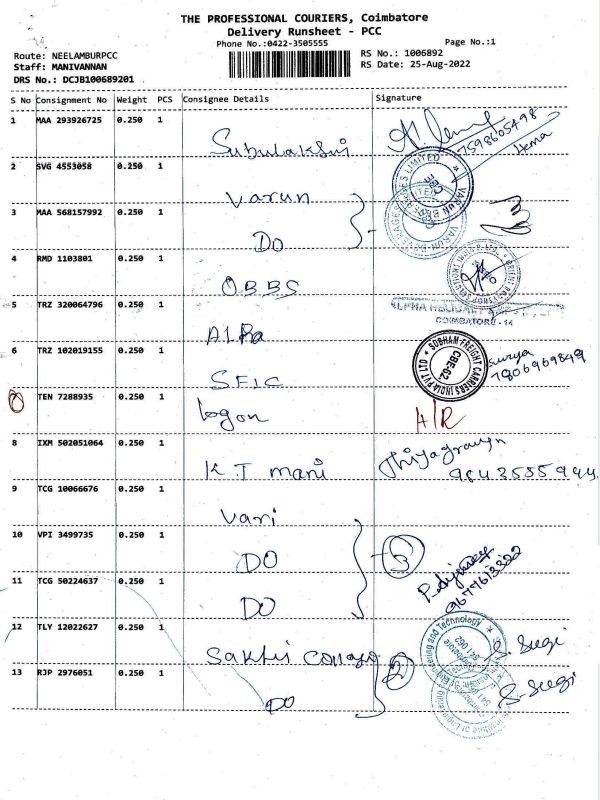 THE PROFESSIONAL COURIERS, Coimbatore
Delivery Runsheet - PCC
Phone No.:0422-3505555
Page No.:1
Route: NEELAMBURPCC
Staff: MANIVANNAN
DRS No.: DCJB100689201
RS No.: 1006892
RS Date: 25-Aug-2022
S No Consignment No Weight PCS Consignee Details Signature
1 MAA 293926725 0.250 1
7598605498
Hema
2 SVG 4553058 0.250 1 Varun
3 MAA 568157992 0.250 1 DO
4 RMD 1103801 0.250 1 OBBS
5 TRZ 320064796 0.250 1
COIMBATORE - 14
6 TRZ 102019155 0.250 1 SFIC
SUBHAM FREIGHT CARRIERS INDIA PVT LTD
CBE-02
Surya
7806969849
7 TEN 7288935 0.250 1 Logon
8 IXM 502051064 0.250 1 K.T mani
9 TCG 10066676 0.250 1 Vani
10 VPI 3499735 0.250 1 DO
3
11 TCG 50224637 0.250 1 DO
9677613322
12 TLY 12022627 0.250 1
2
13 RJP 2976051 0.250 1 DO